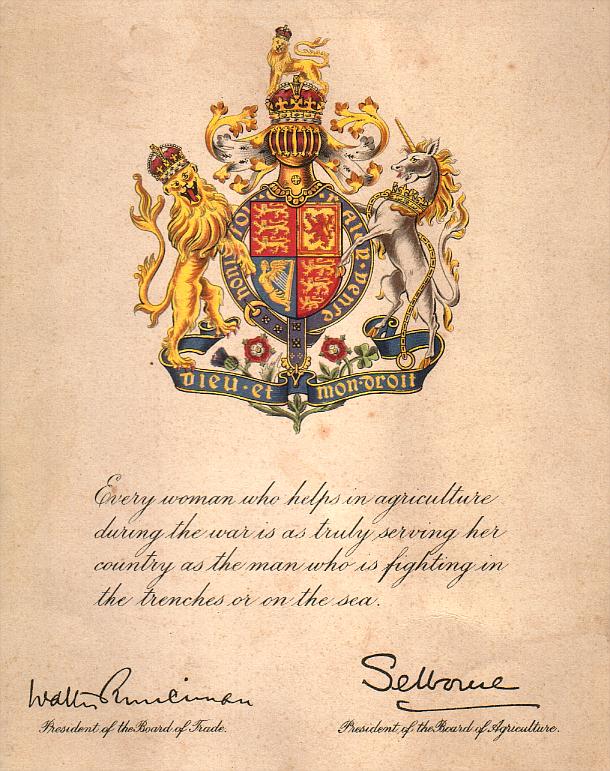 honi
soit
mal y pense
Dieu · et mon · droit
Every woman who helps in agriculture
during the war is as truly serving her
country as the man who is fighting in
the trenches or on the sea.
Walter Runciman
Selborne
President of the Board of Trade.
President of the Board of Agriculture.